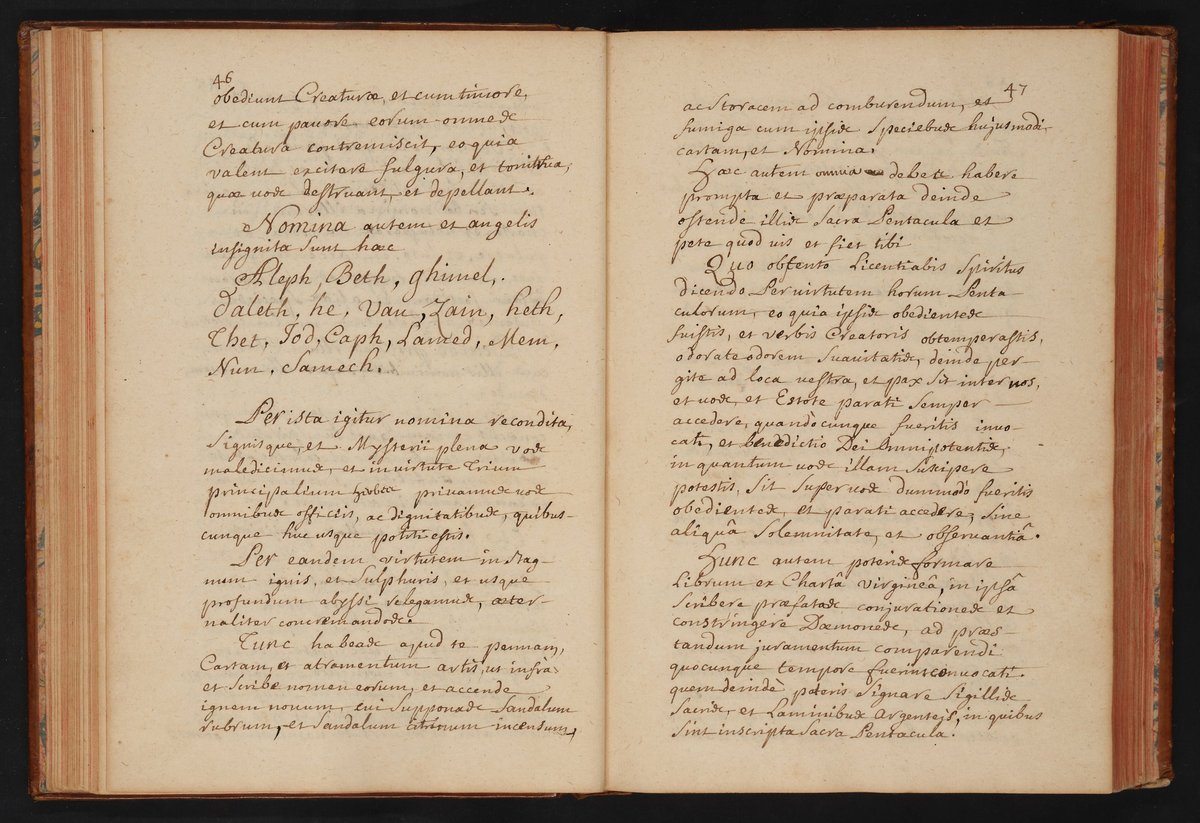 46
obediunt Creaturæ, et cum timore,
et cum pauore eorum omnes
Creatura contremiscit, eo quia
valent excitare fulgura, et tonitrua,
quæ vos destruant, et depellant.
Nomina autem et angelis
insignita sunt hæc
Aleph, Beth, ghimel,
daleth, he, Vau, Zain, heth,
Thet, Jod, Caph, Lamed, Mem,
Nun, Samech.
Per ista igitur nomina recondita,
signisque, et Mysterii plena vos
maledicimus, et in virtute Trium
principalium priuamus vos
omnibus officiis, ac dignitatibus, quibus-
cunque huc usque potiti estis.
Per eandem virtutem in stag-
num ignis, et Sulphuris, et usque
profundum abyssi relegamus, æter-
naliter concremandos.
Tunc habeas apud te pennam,
Cartam, et atramentum artis, ut infra
et scribe nomen eorum, et accende
ignem nouum, cui supponas Sandalum
rubrum, et Sandalum citrinum incensum,
47
ac storacem ad comburendum, et
fumiga cum ipsis speciebus hujusmodi
cartam, et Nomina.
Hæc autem omnia debete habere
prompta et præparata deinde
ostende illis sacra Pentacula et
pete quod vis et fiet tibi
Quo obtento Licentiabis Spiritus
dicendo Per virtutem horum Penta-
culorum, eo quia ipsis obedientes
fuistis, et verbis Creatoris obtemperastis,
odorate odorem suauitatis, deinde per-
gite ad loca vestra, et pax sit inter nos,
et vos, et Estote parati semper
accedere, quandocunque fueritis inuo-
cati, et benedictio Dei Omnipotentis,
in quantum vos illam suscipere
potestis, sit super vos dummodò fueritis
obedientes, et parati accedere, sine
aliquâ solemnitate, et obseruantiâ.
Hunc autem poteris formare
Librum ex Chartâ virgineâ, in ipsâ
scribere præfatas conjurationes et
constringere Dæmones, ad præs-
tandum juramentum comparendi
quocunque tempore fuerint conuocati.
quem deindè poteris signare Sigillis
sacris, et Laminibus Argenteis, in quibus
sint inscripta sacra Pentacula.